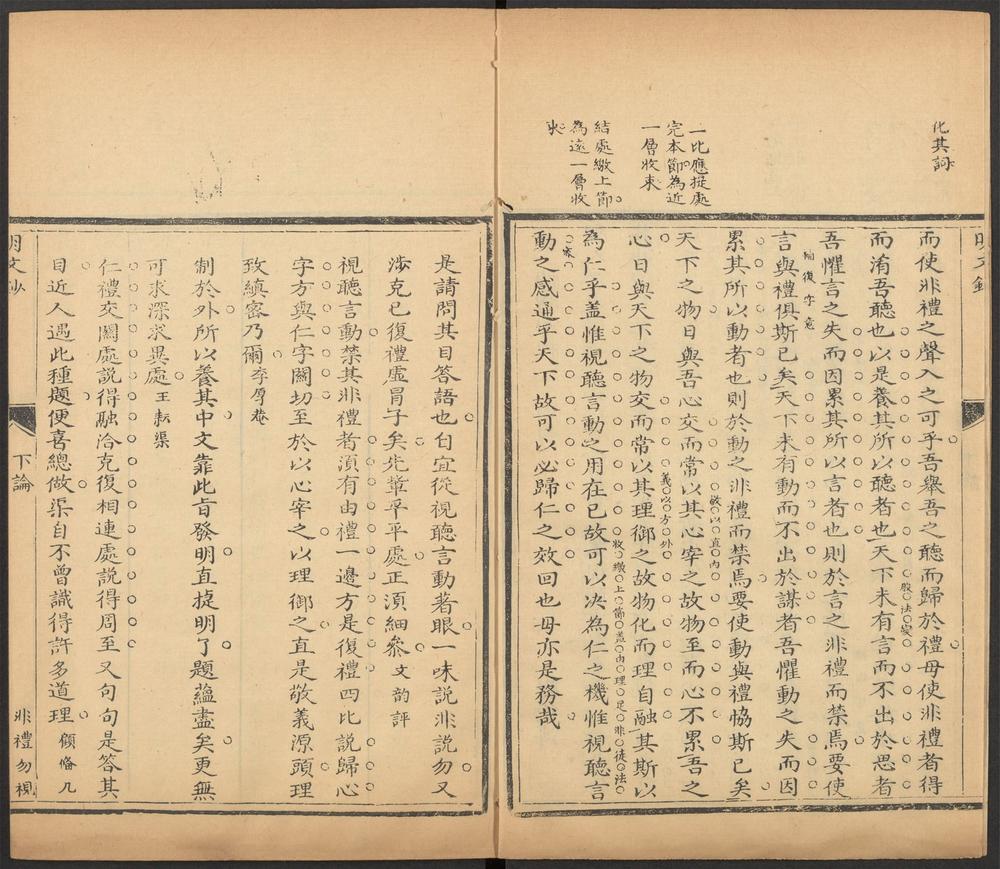 化其詞
一比應提處
完本節為近
一層收束
結處繳上節
為遠一層收
而使非禮之聲入之可乎吾舉吾之聽而歸於禮毋使非禮者得
而淆吾聽也以是養其所以聽者也天下未有言而不出於思者
吾懼言之失而因累其所以言者也則於言之非禮而禁焉要使
言與禮俱斯已矣天下未有動而不出於謀者吾懼動之失而因
累其所以動者也則於動之非禮而禁焉要使動與禮協斯已矣
天下之物日與吾心交而常以其心宰之故物至而心不累吾之
心日與天下之物交而常以其理御之故物化而理自融其斯以
為仁乎蓋惟視聽言動之用在已故可以决為仁之機惟視聽言
動之感通乎天下故可以必歸仁之效回也毋亦是務哉
股法變
敬以直內
義以方外
收繳上節蓋由理足非徒法
是請問其目答語也自宜從視聽言動著眼一味説非説勿又
涉克已復禮虛冒子矣先輩平平處正須細參文韵評
視聽言動禁其非禮者須有由禮一邊方是復禮四比説歸心
字方與仁字關切至於以心宰之以理御之直是敬義源頭理
致縝密乃爾李厚菴
制於外所以養其中文靠此旨發明直捷明了題蘊盡矣更無
可求深求異處王耘渠
仁禮交關處説得融洽克復相連處説得周至又句句是答其
目近人遇此種題便喜總做渠自不曾識得許多道理
明文鈔
下論
非禮勿視